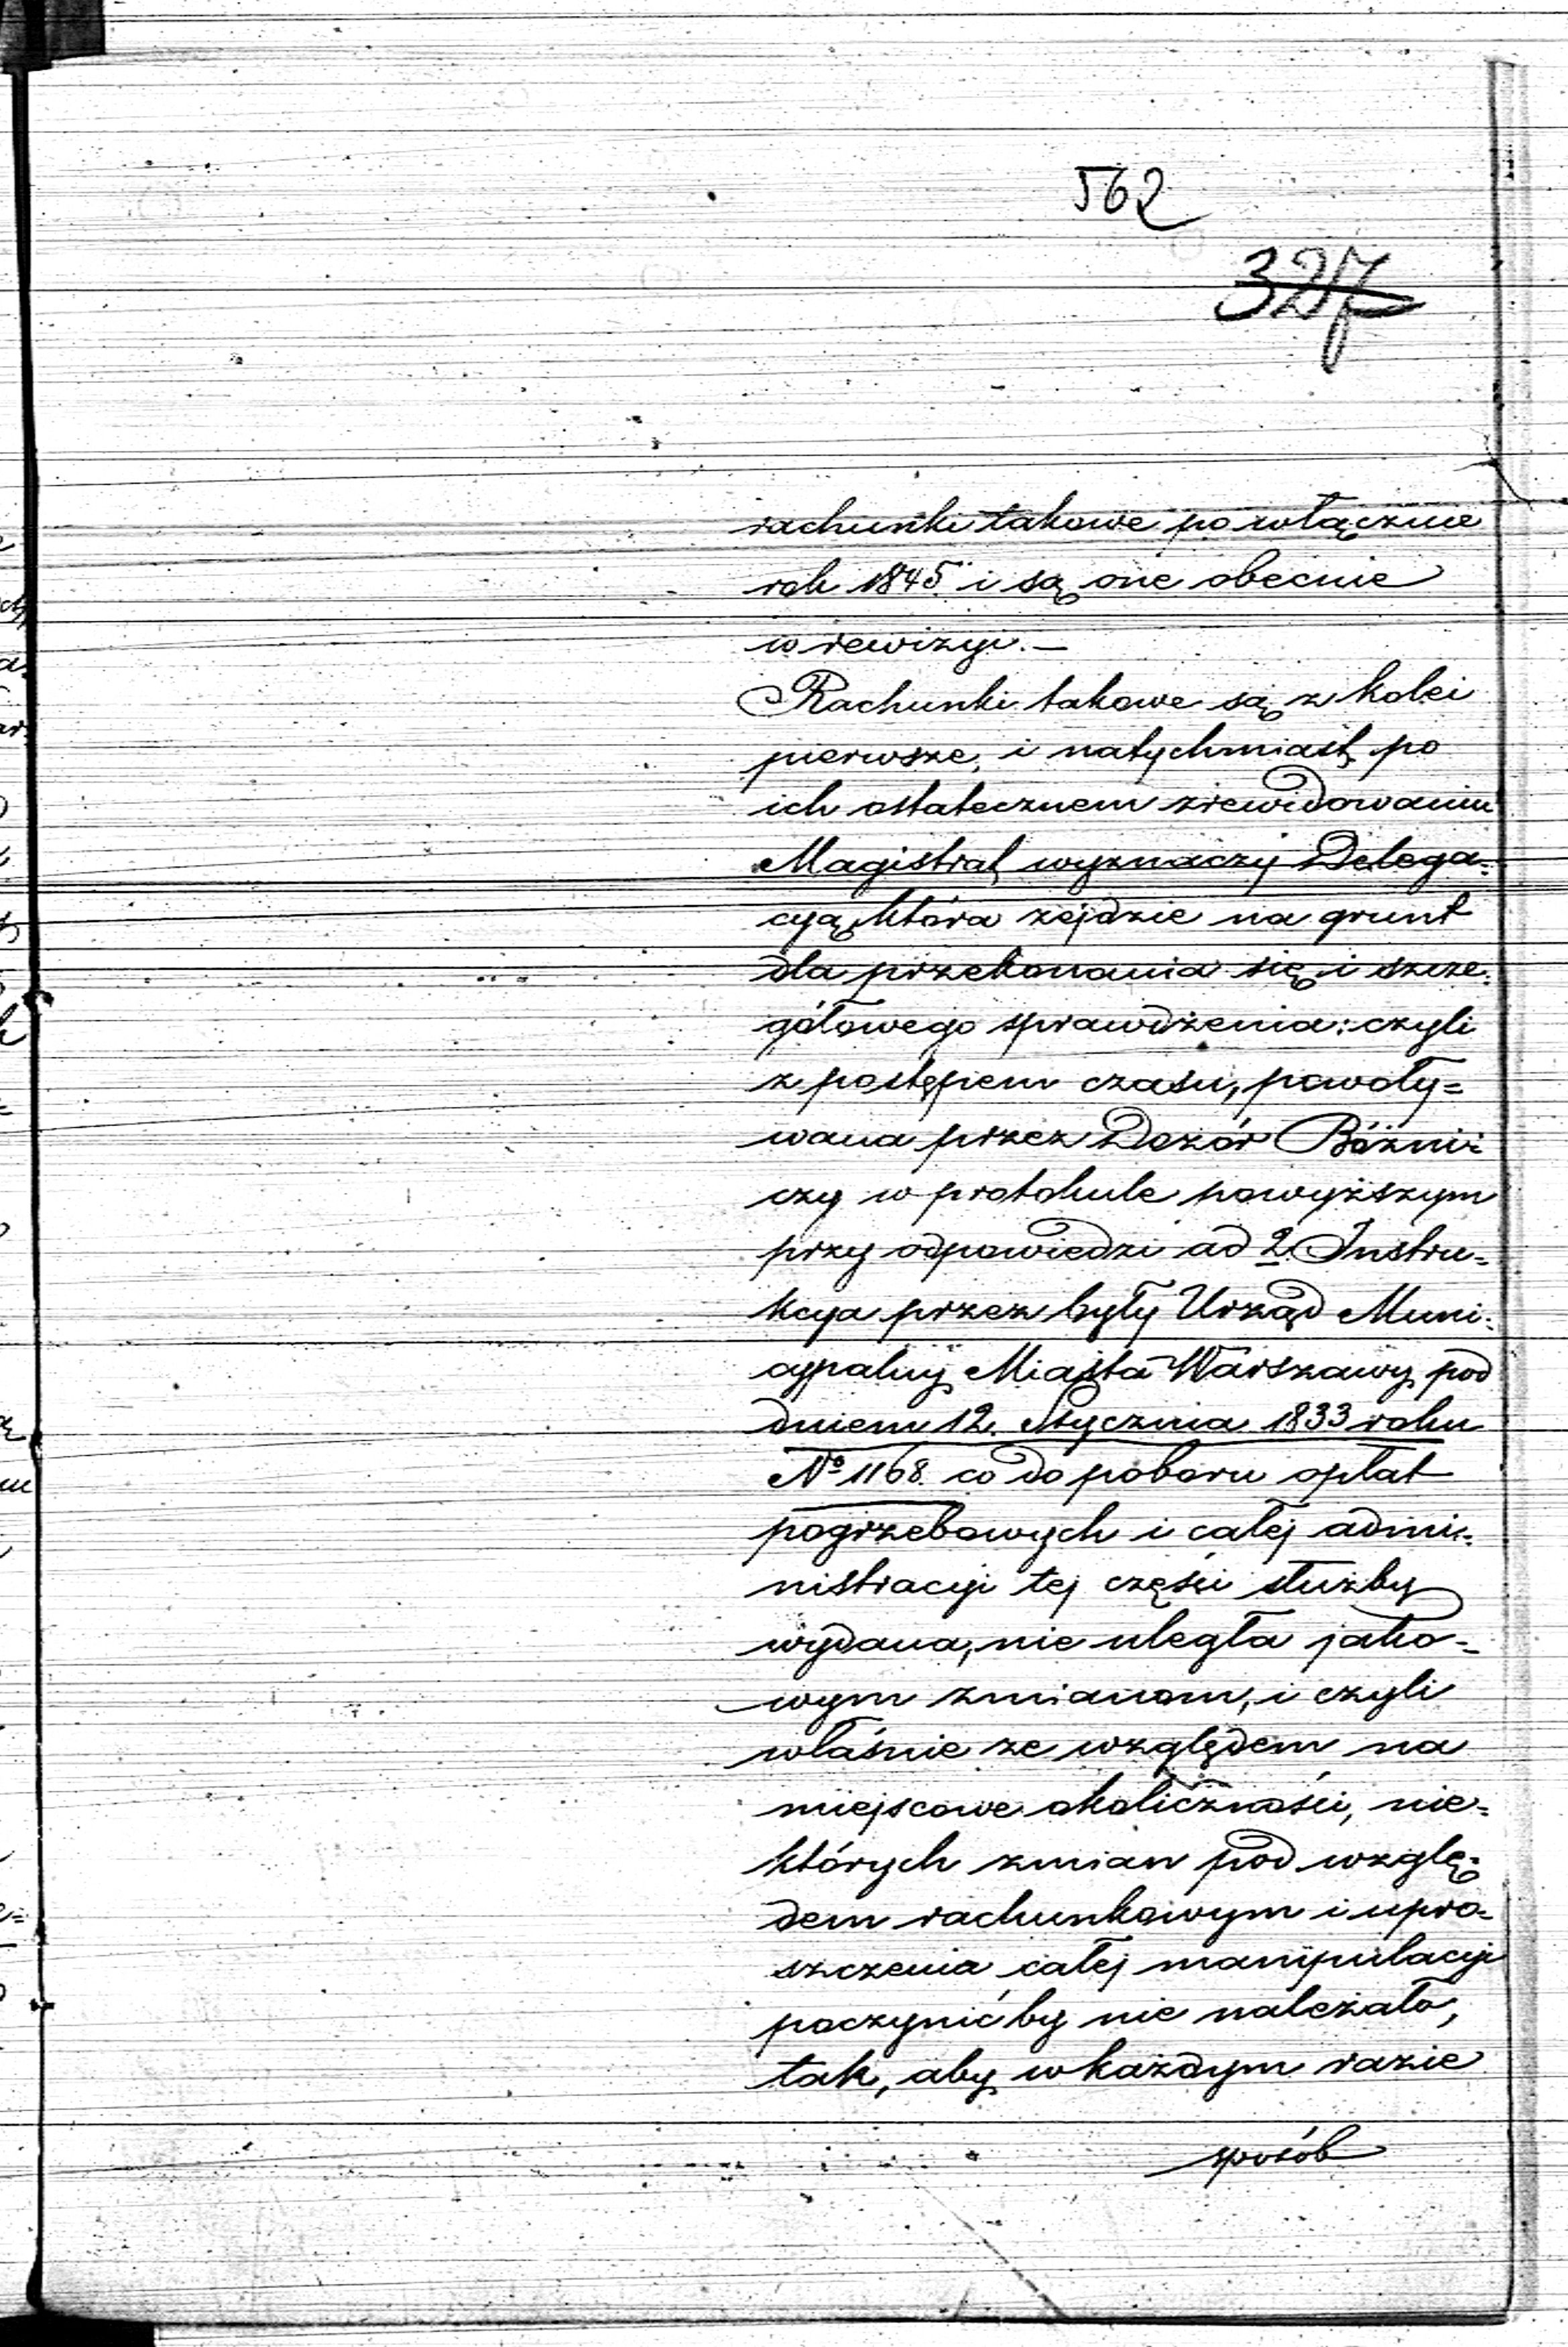 562
327
rachunki takowe po włącznie
rok 1845. i są one obecnie
w rewizyi. —
Rachunki takowe są z kolei
pierwsze, i natychmiast po
ich ostatecznem zrewidowaniu
Magistrat wyznaczy Delega=
cyą, która zejdzie na grunt
dla przekonania się i szcze=
gółowego sprawdzenia: czyli
z postępem czasu, powoły=
wana przez Dozór Bóżni=
czy w protokule powyższym
przy odpowiedzi ad 2. Instru=
kcya przez były Urząd Muni=
cypalny Miasta Warszawy pod
dniem 12. Stycznia 1833 roku
Nº 1168. co do poboru opłat
pogrzebowych i całej admi=
nistracyi tej części służby
wydana, nie uległa jako=
wym zmianom, i czyli
właśnie ze względem na
miejscowe okoliczności, nie=
których zmian pod wzglę=
dem rachunkowym i upro=
szczenia całej manipulacyi
poczynić by nie należało,
tak, aby w każdym razie
sposób